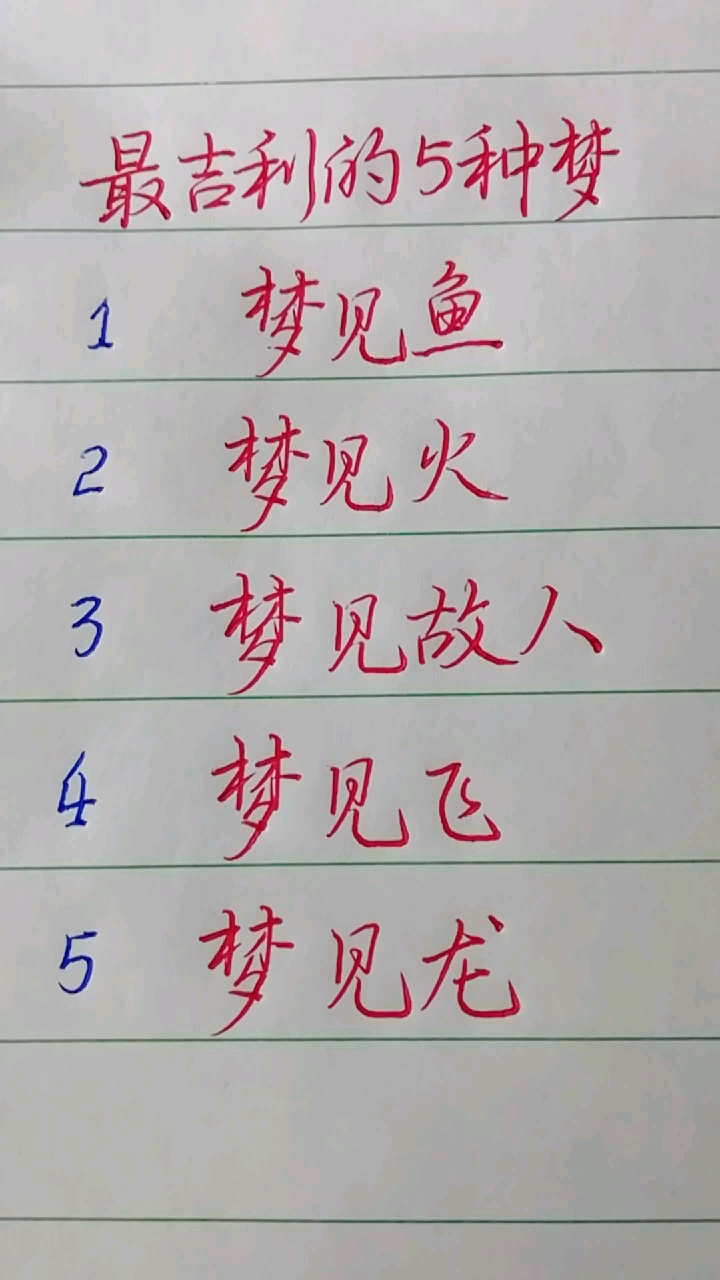 最吉利的5种梦
1 梦见鱼
2 梦见火
3 梦见故人
4 梦见飞
5 梦见龙